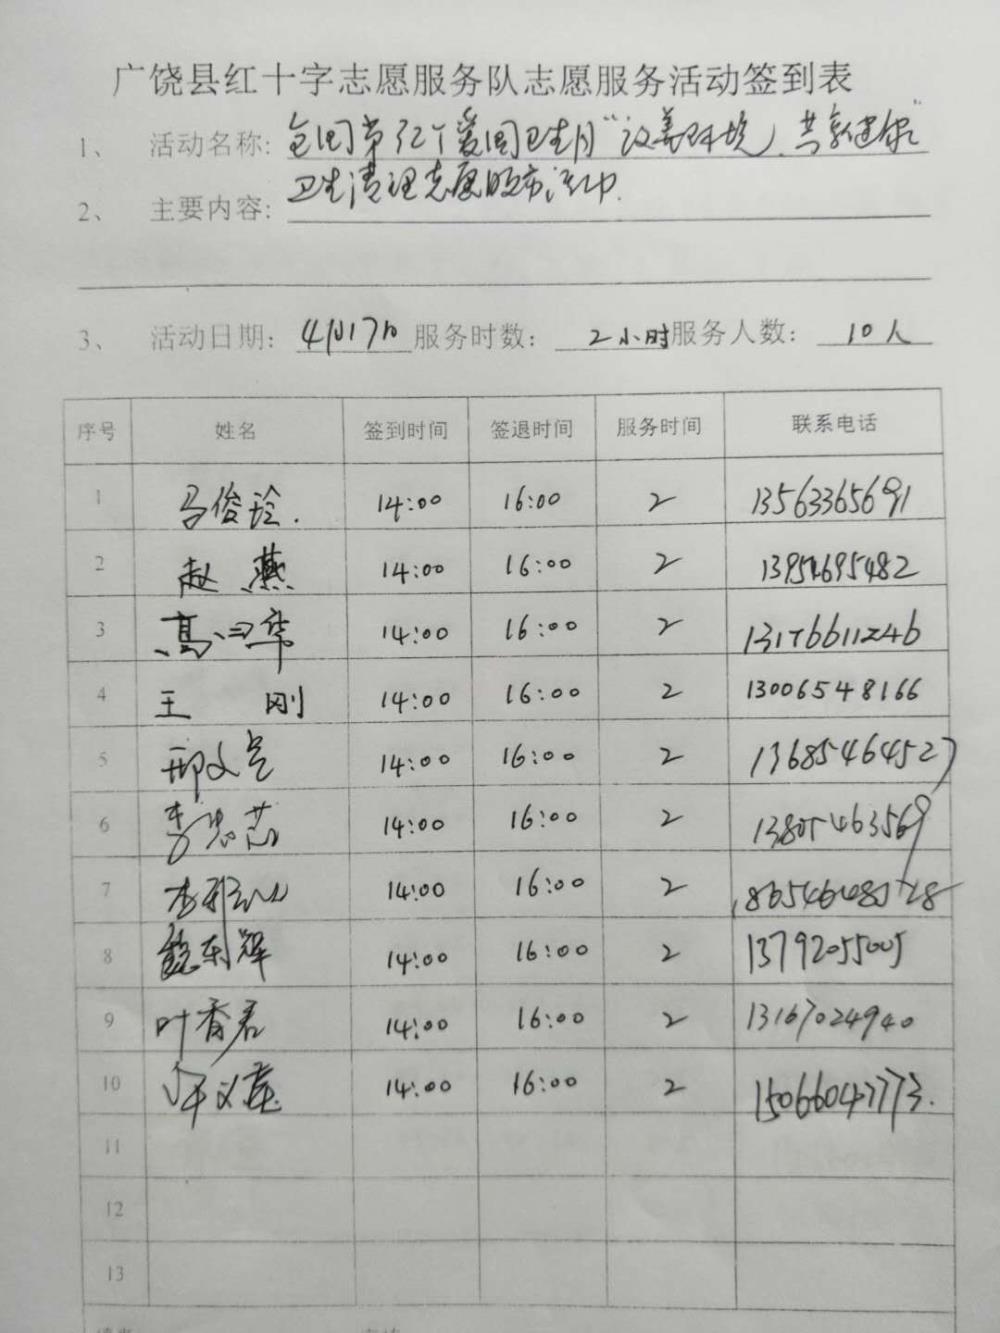 广饶县红十字志愿服务队志愿服务活动签到表
1、 活动名称: 全国第32个爱国卫生月"议美环境,共享健康"
卫生清理志愿服务活动.
2、 主要内容:
3、 活动日期: 4月17日 服务时数: 2小时 服务人数: 10人
序号 姓名 签到时间 签退时间 服务时间 联系电话
1 马俊玲. 14:00 16:00 2 13563365691
2 赵燕 14:00 16:00 2 13954695482
3 14:00 16:00 2 13176611246
4 王刚 14:00 16:00 2 13006548166
5 邢文亮 14:00 16:00 2 13685464527
6 14:00 16:00 2 13805463569
7 14:00 16:00 2
8 魏东辉 14:00 16:00 2 13792055005
9 叶香君 14:00 16:00 2 13167024940
10 14:00 16:00 2 15066047773.
11
12
13